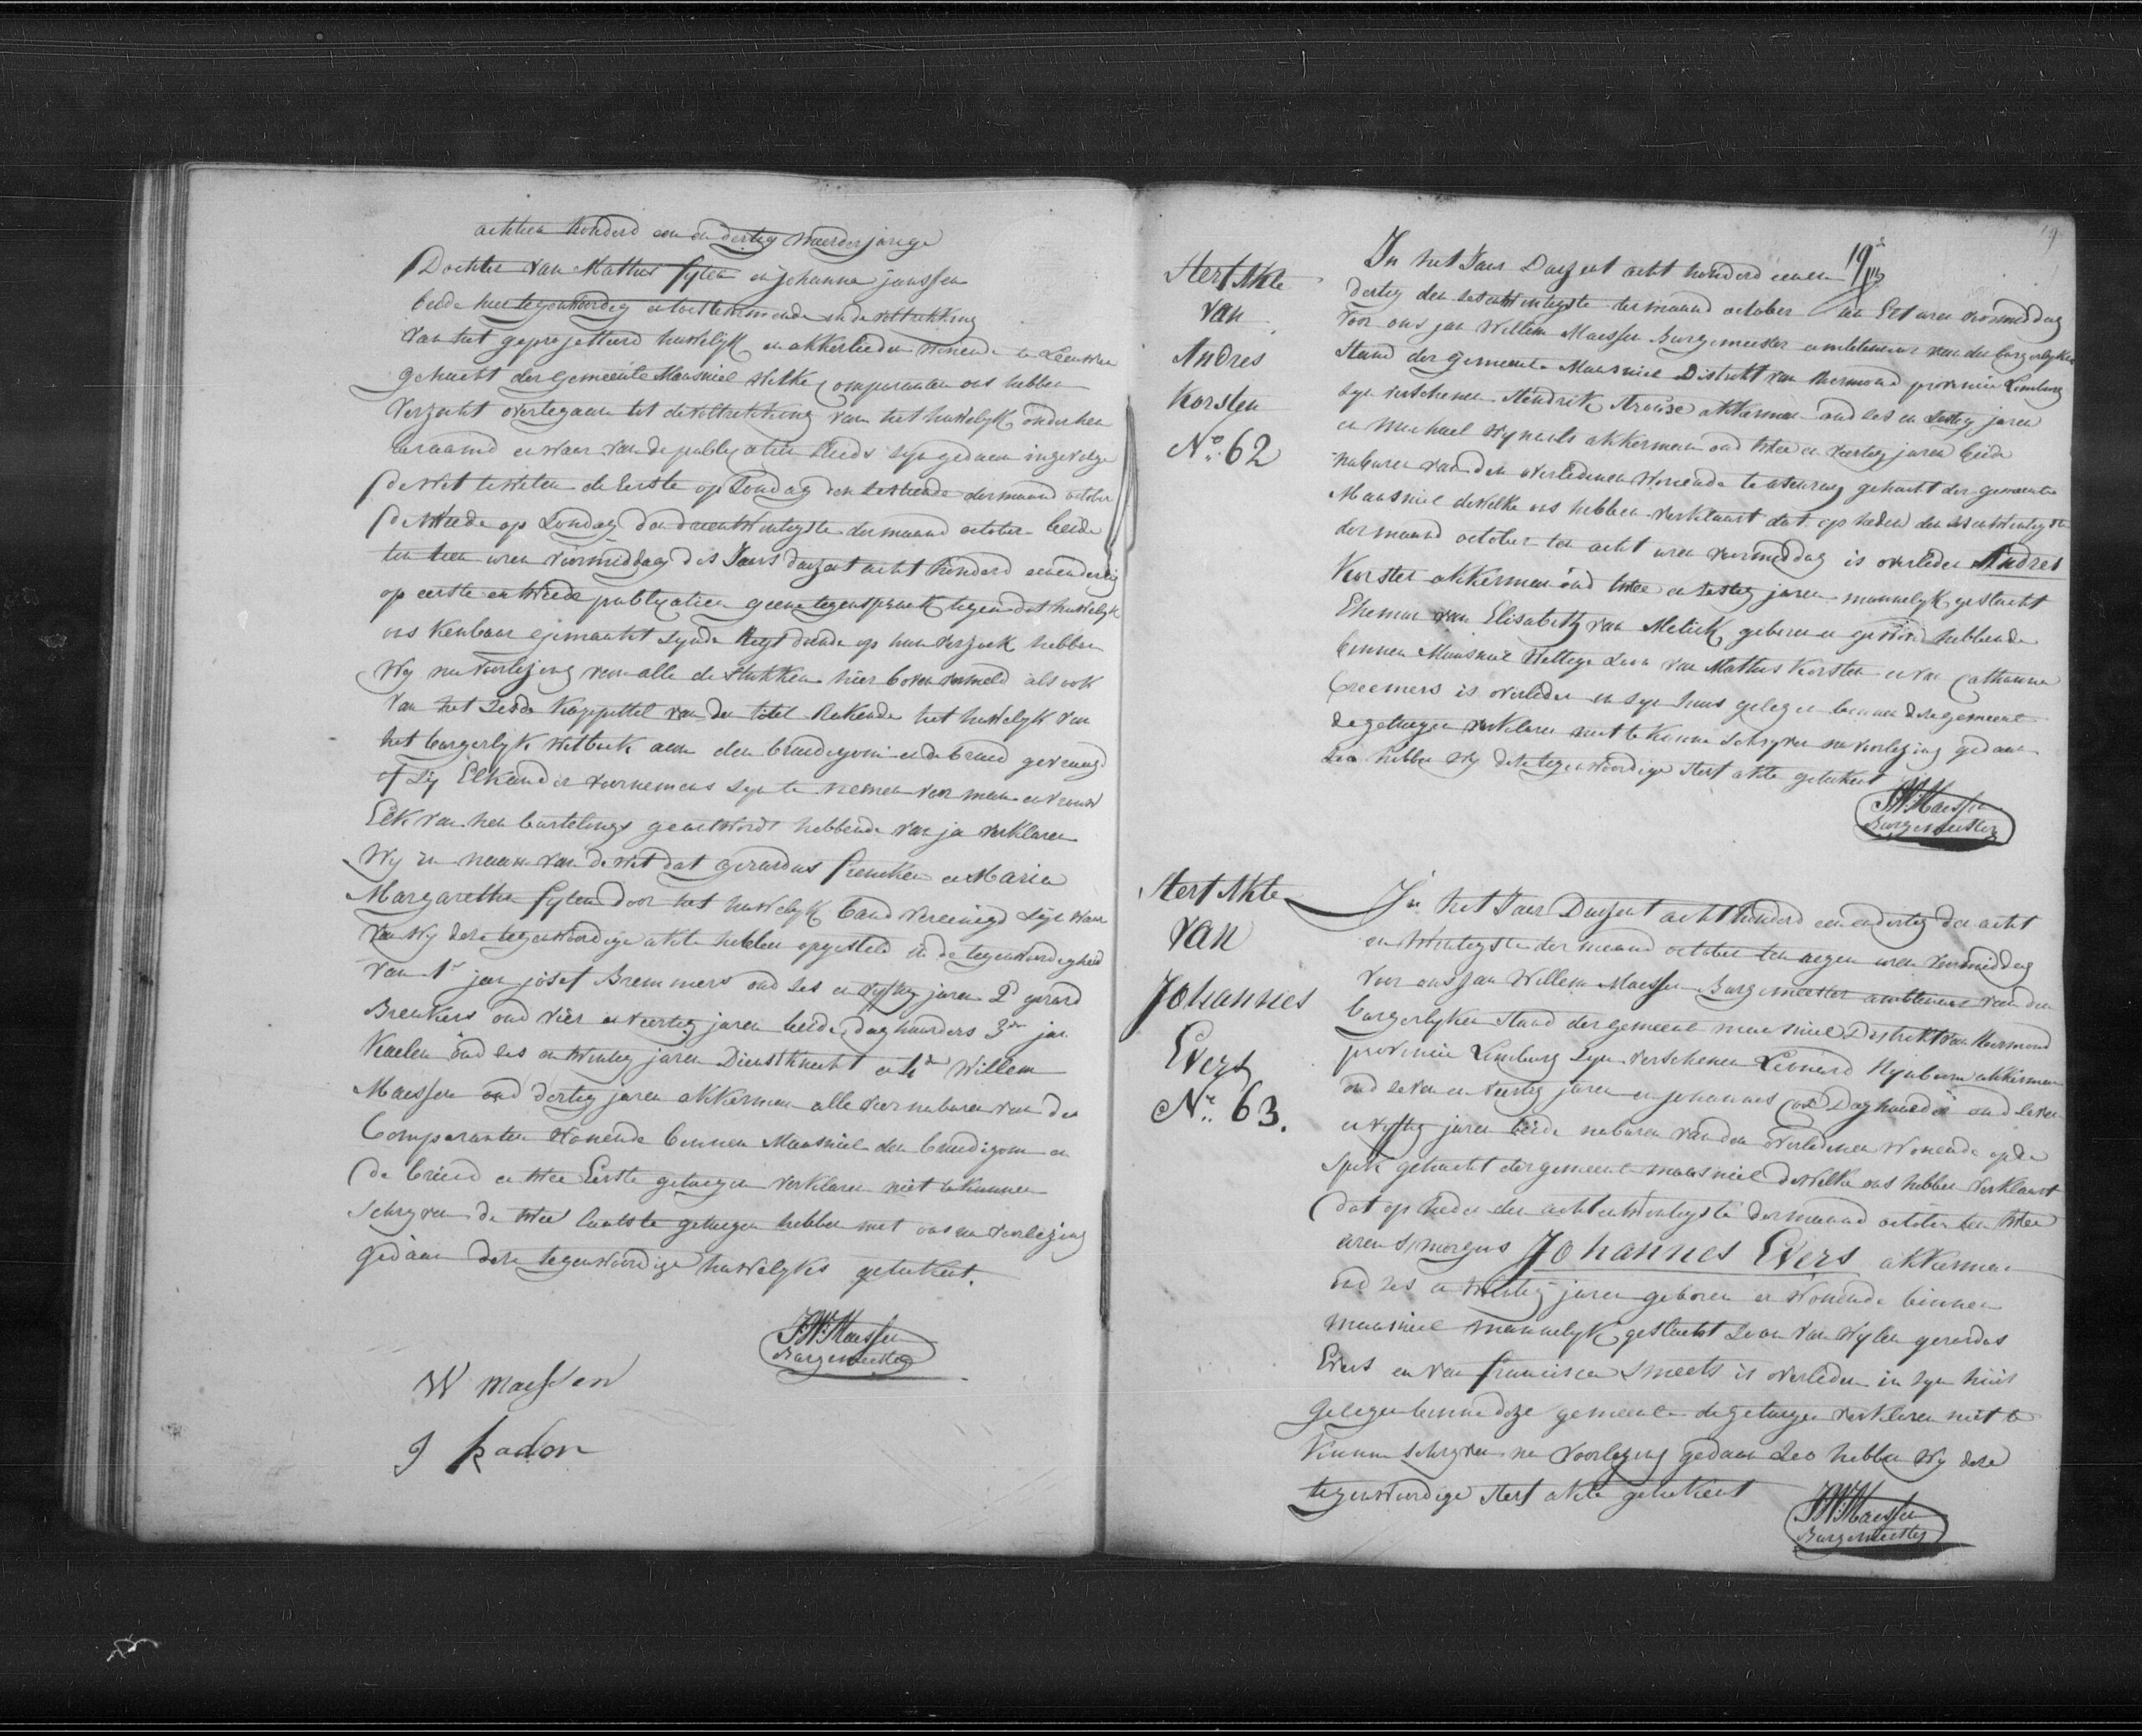 achtien honderd een en dertig meerderjarige
Dochter van Mathis Sylen en Johanna janssen
beide hier tegenwoordig en toestemmende in de voltrekking
van het geprojetteerd huwelyk en akkerlieden wonende te Leeuwen
gehucht der Gemeente Maasniel welke Comparanten ons hebben
verzocht overtegaan tot de voltrekking van het huwelyk onder hen
beraamd en waar van de publicatien reeds syn gedaen ingevolge
de wet te weten de Eerste op Sondag den sestiende der maand october
de tweede op Sondag den drieentwintigste der maand october beide
ten tien uren voormiddag des Jaers duyzent acht honderd eenendertig
op eerste en tweede publicatien geene tegenspraek tegen dat huwelyk
ons kenbaar gemaakt synde Regt doende op hun verzoek hebben
Wy na voorlezing van alle de stukken hier boven vermeld als ook
van het sesde kappittel van den titel Rakende het huwelyk van
het burgerlyk wetboek aen den bruidegom en de bruid gevraagd
of sy Elkander voornemens syn te nemen voor man en vrouw
Elk van hen bursteling geantwoord hebbende van ja verklaren
Wy in naam van de wet dat gerardus frencken en Maria
Margaretha Sylen door het huwelyk band vereenigd syn waar
van wy deze tegenwoordige akte hebben opgesteld in de tegenwoordigheid
van 1e jan josef Bremmers oud ses en vyftig jaren 2e gerard
Breukers oud vier en veertig jaren beide daghuurders 3de jan
Kaelen oud ses en twintig jaren Dienstknecht en 4de Willem
Maessen oud dertig jaren akkerman alle vier naburen van den
Comparanten wonende binnen Maasniel den bruidigom en
de bruid en twee Eerste getuigen verklaren niet te kunnen
schryven de twee laatste getuigen hebben met ons na voorlezing
gedaan deze tegenwoordige huwelykx getekent.
J W Maessen
Burgemeester
W maessen
J kadon
19de
Sterf Akte
van
Andres
Korsten
No. 62
In het Jaer Duyzent acht honderd eenen
dertig den sesentwintigste der maand october ten Elf uren voormiddag
voor ons jan Willem Maessen Burgemeester ambtenaar van den burgerlyken
Stand der gemeente Maasniel Distrikt van Rurmond provincie Limburg
syn verschenen Hendrik Krouse akkerman oud ses en sestig jaren
en Michael Wynants akkerman oud twee en veertig jaren beide
naburen van den overledenen wonende te asenray gehucht der gemeente
Maasniel dewelke ons hebben verklaart dat op heden den sesentwintigste
der maand october ten acht uren voormiddag is overleden Andres
Korsten akkerman oud twee en sestig jaren mannelyk geslacht
Eheman van Elisabeth van Melick geboren en gewond hebbende
binnen Maasniel Wettige Soon van Mathis Korsten en van Catharina
Creemers is overleden in syn huis gelegen binnen deze gemeente
de getuigen verklaren niet te kunnen schryven na voorlezing gedaan
Soo hebben wy deze tegenwoordige sterf akte getekent
J W Maessen
Burgemeester
Sterf Akte
van
Johannes
Evers
No. 63.
In het Jaer Duyzent acht honderd een en dertig den acht
en twintigste der maand october ten negen uren voormiddag
voor ons Jan Willem Maessen Burgemeester ambtenaar van den
burgerlyken Stand der gemeente maasniel Distrikt van Rurmond
provincie Limburg syn verschenen Leonard Nyaboom akkerman
oud seven en veertig jaren en Johannes Daghuurder oud seven
en vyftig jaren beide naburen van den overledenen wonende op de
Spik gehucht der gemeente maasniel dewelke ons hebben verklaart
dat op heden den achtentwintigste der maand october ten twee
uren s morgens Johannes Evers akkerman
oud ses en twintig jaren geboren en wonende binnen
maasniel mannelyk geslacht Soon van wylen gerardus
Evers en van francisca Smeets is overleden in syn huis
gelegen binnen deze gemeente de getuigen verklaren niet te
kunnen schryven na voorlezing gedaan Soo hebben Wy deze
tegenwoordige sterf akte getekent
J W Maessen
Burgemeester